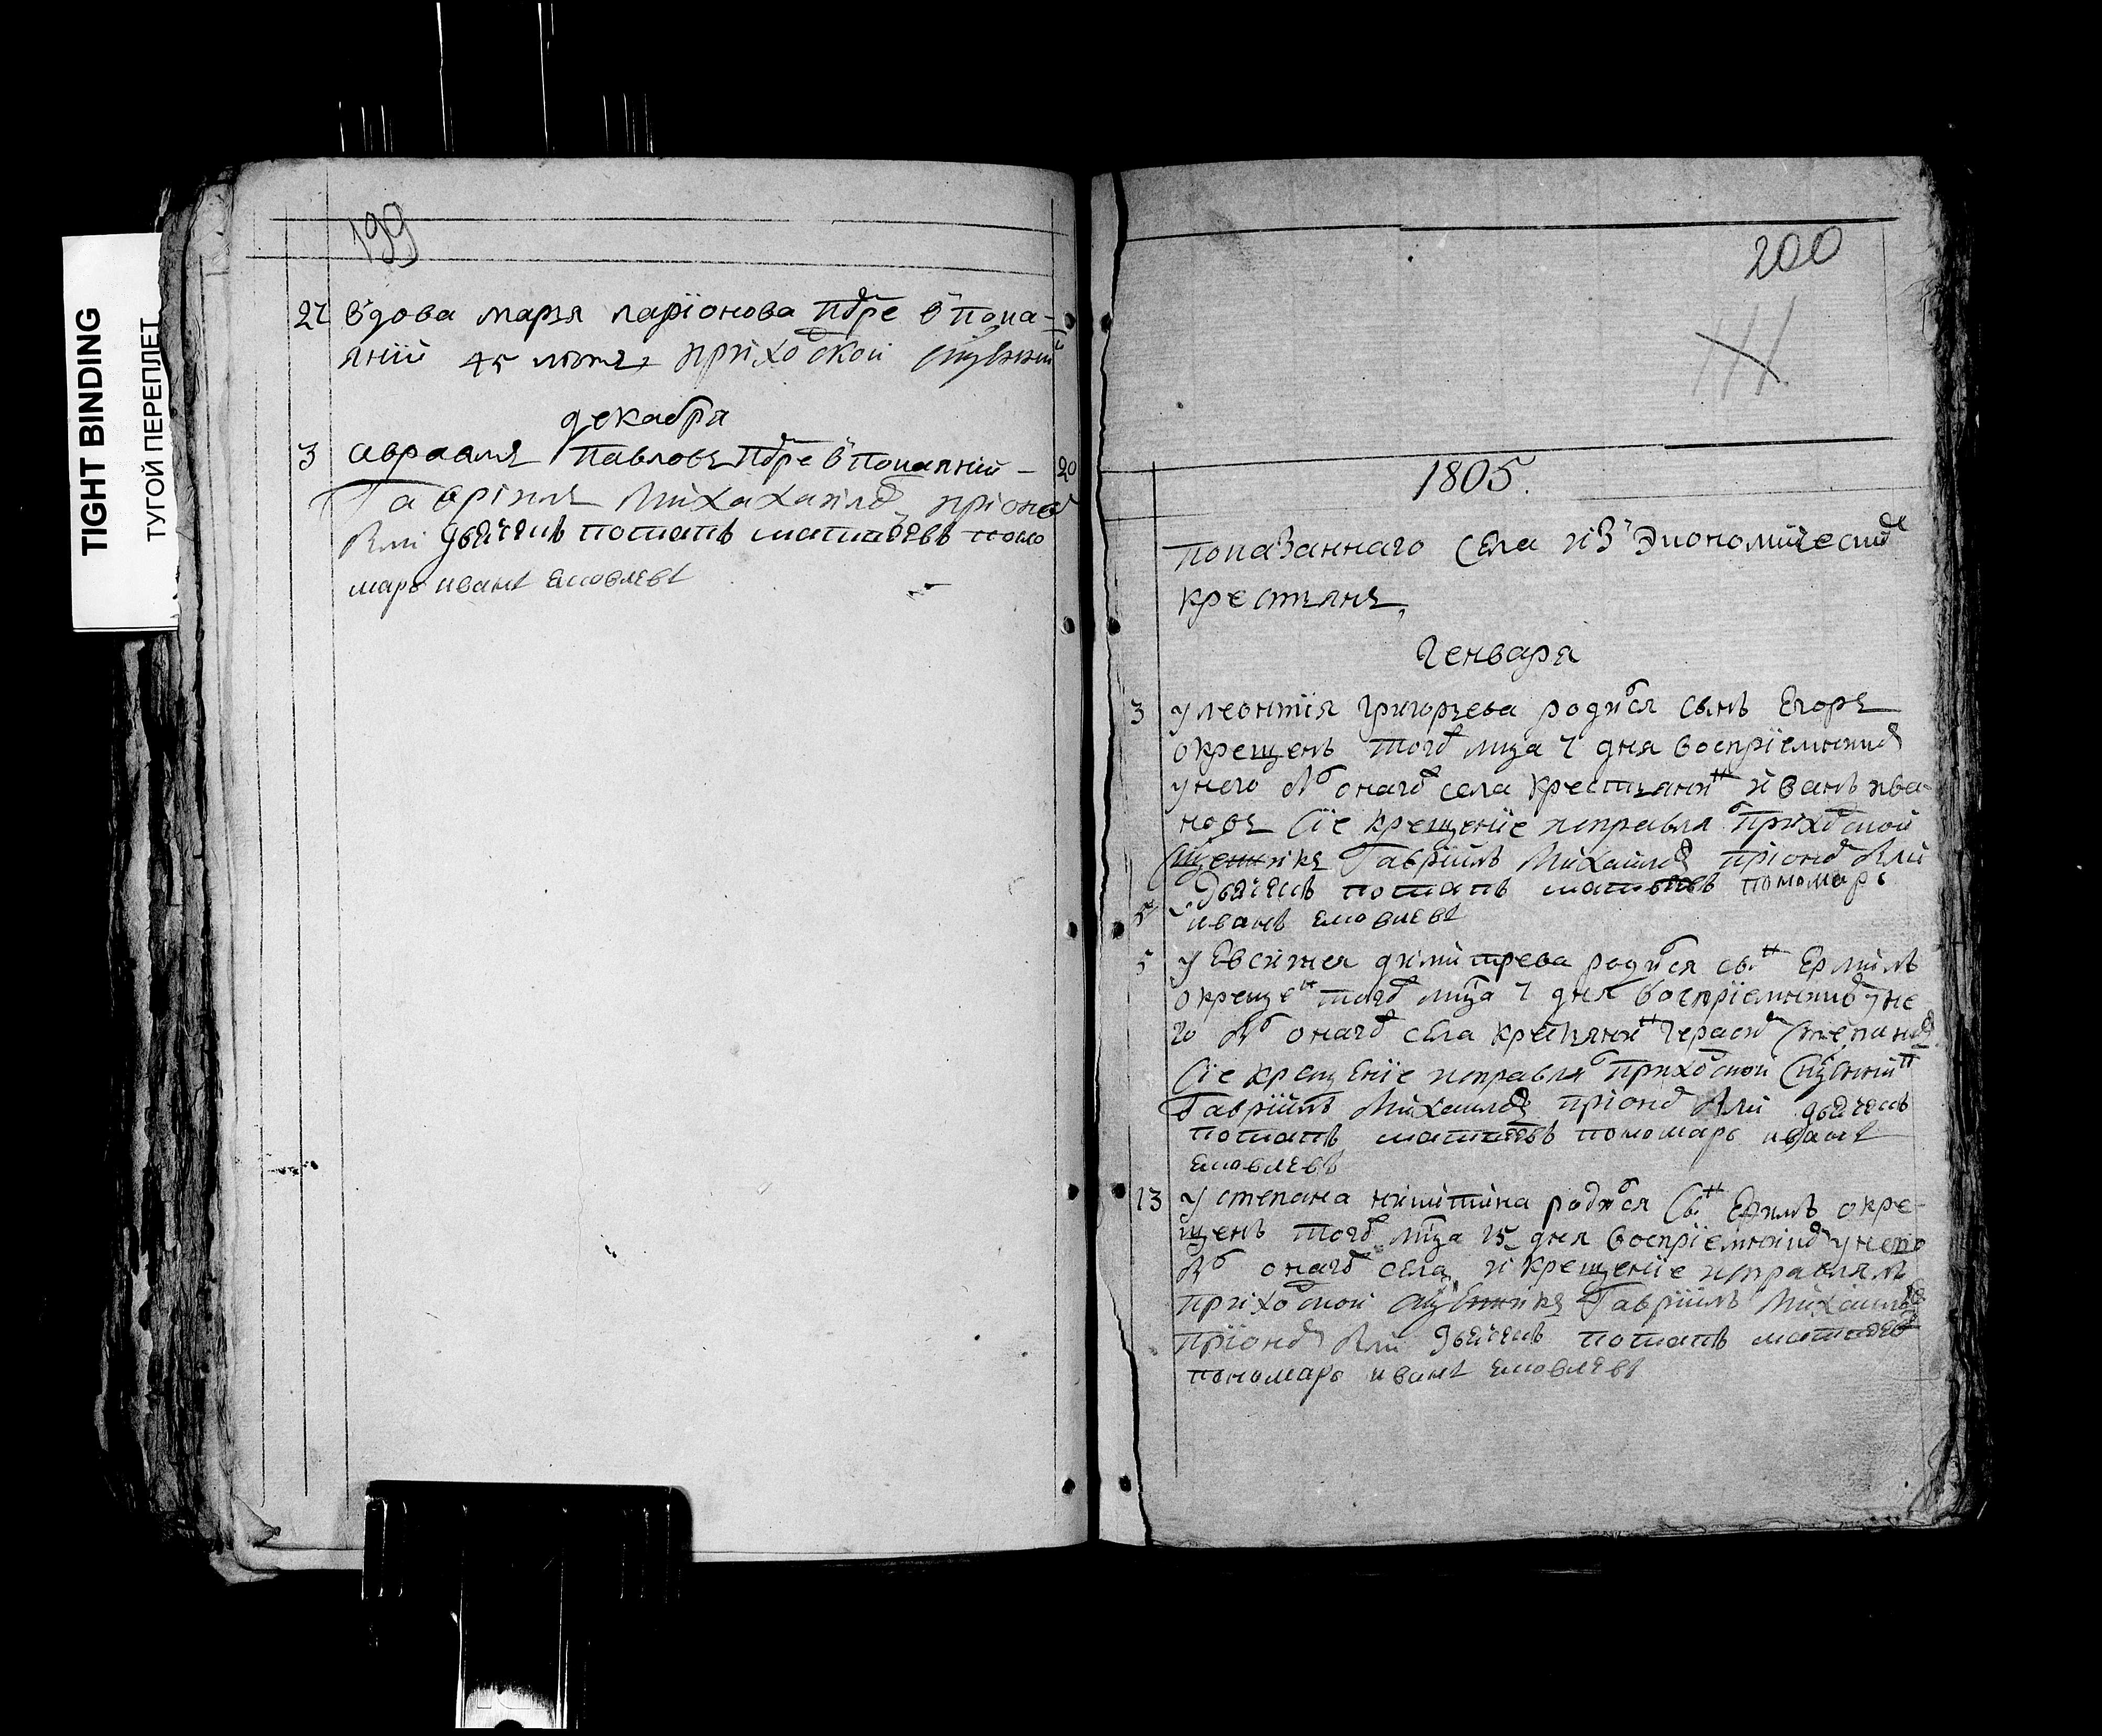 TIGHT BINDING
ТУГОЙ ПЕРЕПЛЕТ
199
27 вдова марья ларїонова погре в пока-
янїи 45 летъ приходской священникъ
декабря
3 авраамъ павловъ погре в покаянїи - 20
Гаврїилъ Михахайлов, при оно
дьячекъ потапъ матвѣевъ поно
марь иванъ яковлевъ
200
1805.
показаннаго села из экономическихъ
крестьянъ,
Генваря
3 у леонтїя григорьева родися сынъ Егоръ
окрещенъ того мца 7 дня воспрїемникъ
у него онаго села крестьянинъ иванъ ива-
новъ сїе крещенїе исправлялъ приходской
священникъ Гаврїилъ Михайловъ при оно
дьячекъ потапъ матвѣевъ пономарь
иванъ яковлевъ
5 у Евсигнея димитрева родися сынъ Ермилъ
окрещенъ того мца 7 дня воспрїемникъ у не
го онаго села крестьянинъ герасимъ степановъ
сїе крещенїе исправлялъ приходской священникъ
Гаврїилъ Михайловъ при оно дьячекъ
потапъ матвѣевъ пономарь иванъ
яковлевъ
13 у степана никитина родися сынъ окре-
щенъ того мца 15 дня воспрїемникъ у него
онаго села и крещенїе исправлялъ
приходской священникъ Гаврїилъ Михайловъ
при оно дьячекъ потапъ матвѣевъ
пономарь иванъ яковлевъ